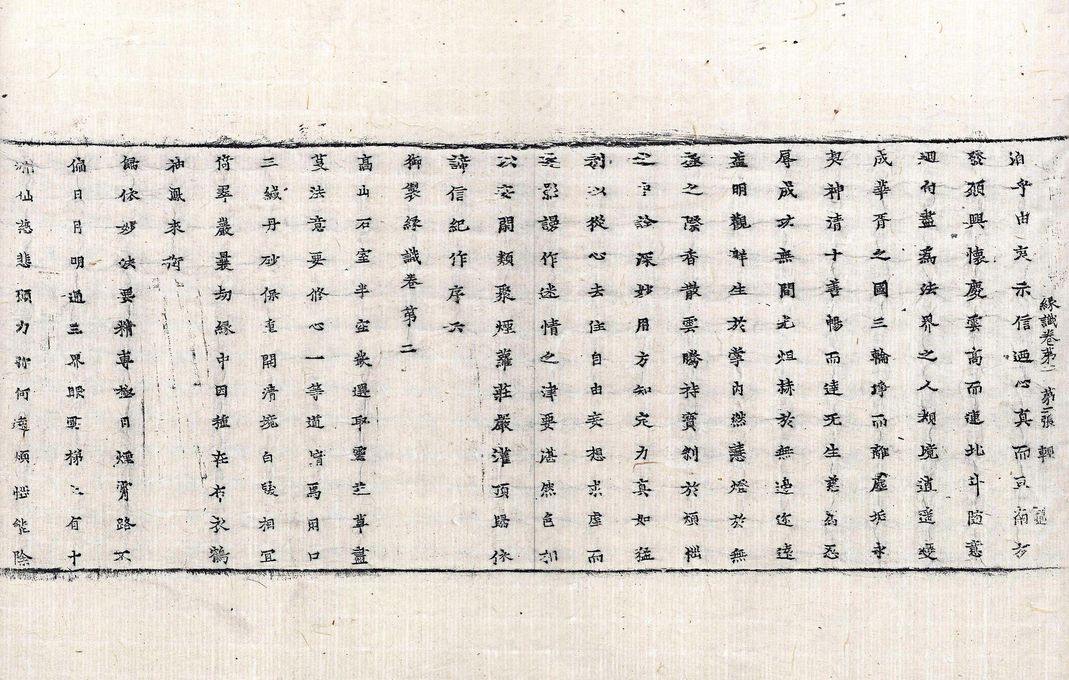 緣識卷第二　第二張　輕
泊乎由衷示信迴心真而豆南方
發頭興懷慶雲高而連北斗隨意
迴向盡爲法界之人頻境逍遙變
成華胥之國三輪淨而離塵垢永
契神清十善暢而達无生慈爲忍
辱成功無間光爼赫於無邊遠達
蓋明觀群生於掌內燃慧燈於無
盡之際香散雲騰持寶剎於煩惱
之中診深妙用方知定力真如猛
利以從心去住自由妄想求虛而
逐影謾作迷情之津要湛然色相
以安閑類聚煙蘿莊嚴灌頂歸依
諦信紀作序六
御製緣識卷第二
高山石室半空嵌邐取靈芝草盡
芟法意要修心一等道情爲用口
三緘丹砂保直開清境白駁相宜
倚翠巖曩劫緣中因種在布衣鶴
神鳳來銜
歸依妙法要精專極目煙霄路不
偏日月明通三界眼雲梯二有十
洲仙慈悲願力行何遠煩惱能除